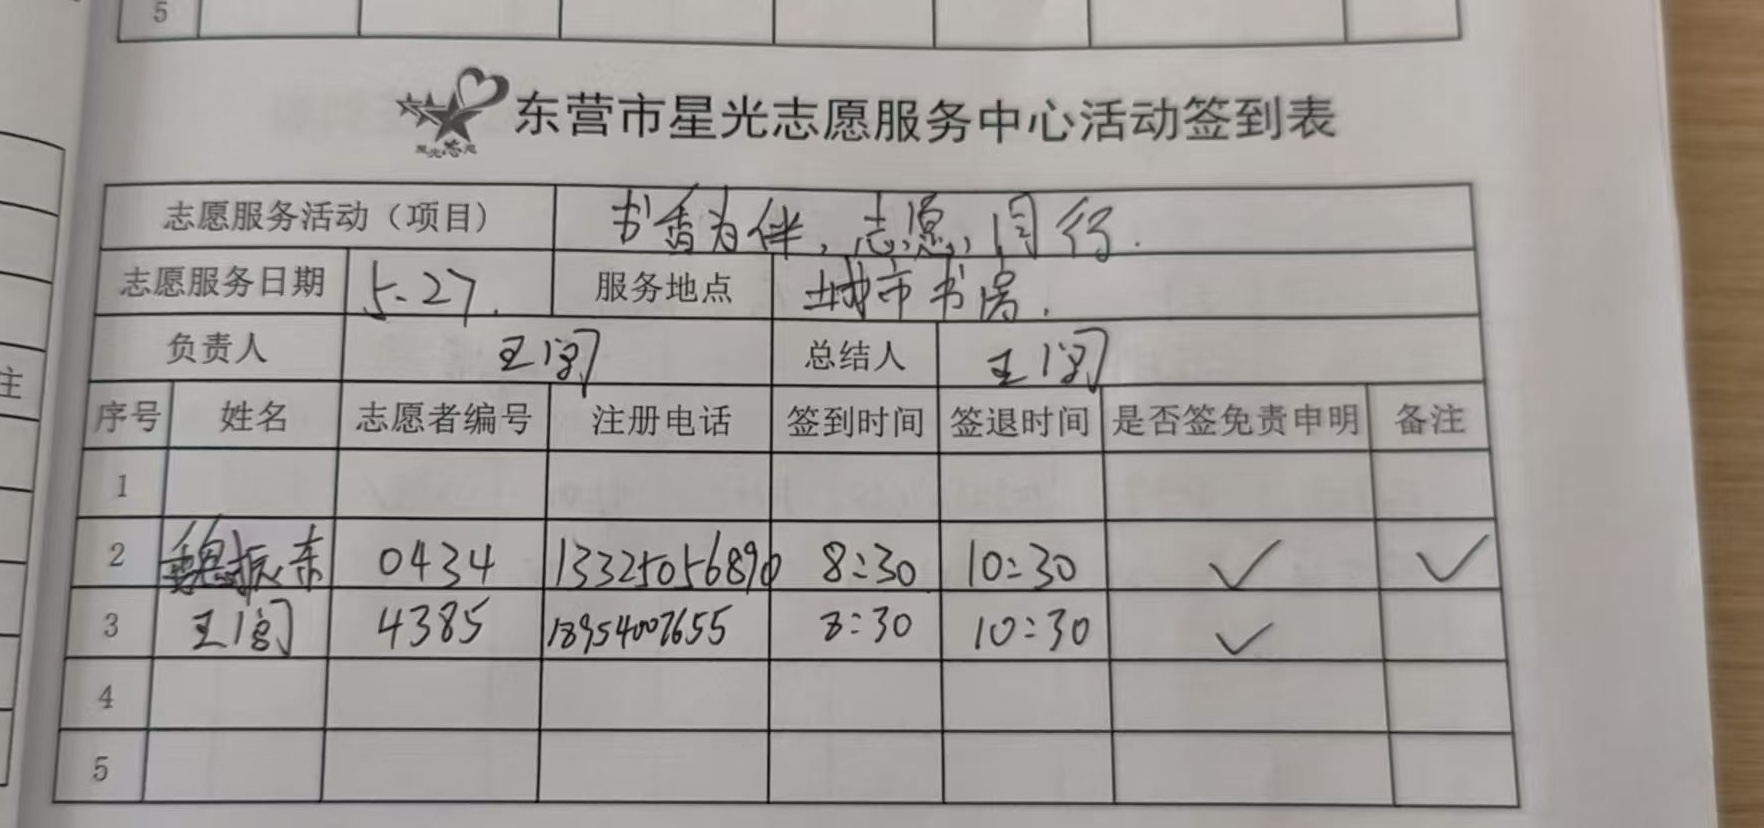 5
星光志愿
东营市星光志愿服务中心活动签到表
志愿服务活动（项目） 书香为伴，志愿同行.
志愿服务日期 5.27. 服务地点 城市书房.
负责人 王 总结人 王
主
序号 姓名 志愿者编号 注册电话 签到时间 签退时间 是否签免责申明 备注
1
2 魏振东 0434 13325056890 8:30 10:30 ✓ ✓
3 王 4385 18954007655 8:30 10:30 ✓
4
5